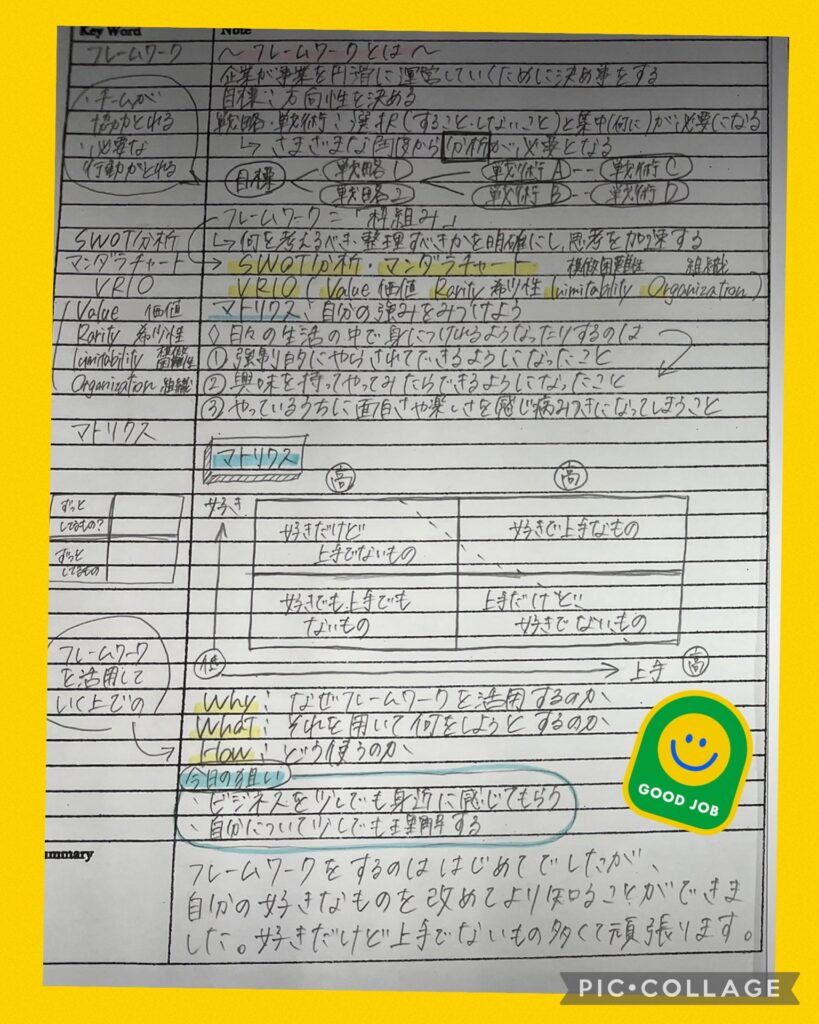 Key Word
Note
フレームワーク
～フレームワークとは～
企業が事業を円滑に運営していくために決め事をする
・チームが
協力とれる
・必要な
行動がとれる
目標：方向性を決める
戦略・戦術：選択(すること・しないこと)と集中(何に)が必要になる
↳さまざまな角度から分析が必要となる
目標
戦略1
戦略2
戦術A--戦術C
戦術B--戦術D
フレームワーク＝「枠組み」
↳何を考えるべき・整理すべきかを明確にし、思考を加速する
SWOT分析
マンダラチャート
VRIO
→SWOT分析・マンダラチャート
模倣困難性
組織
VRIO(Value 価値 Rarity 希少性 Inimitability Organization)
Value 価値
Rarity 希少性
Inimitability 模倣困難性
Organization 組織
マトリクス：自分の強みをみつけよう
◇日々の生活の中で身につけれるようなったりするのは
①強制的にやらされてできるようになったこと
②興味を持ってやってみたらできるようになったこと
③やっているうちに面白さや楽しさを感じ病みつきになってしまうこと
マトリクス
マトリクス
高
高
好き
好きだけど
上手でないもの
好きで上手なもの
好きでも上手でも
ないもの
上手だけど、
好きでないもの
低
上手 高
ずっと
してるもの?
ずっと
してるもの
フレームワーク
を活用して
いく上での
Why：なぜフレームワークを活用するのか、
What：それを用いて何をしようとするのか
How：どう使うのか、
今日の狙い
・ビジネスを少しでも身近に感じてもらう
・自分について少しでも理解する
GOOD JOB
ummary
フレームワークをするのははじめてでしたが、
自分の好きなものを改めてより知ることができま
した。好きだけど上手でないもの多くて頑張ります。
PIC•COLLAGE